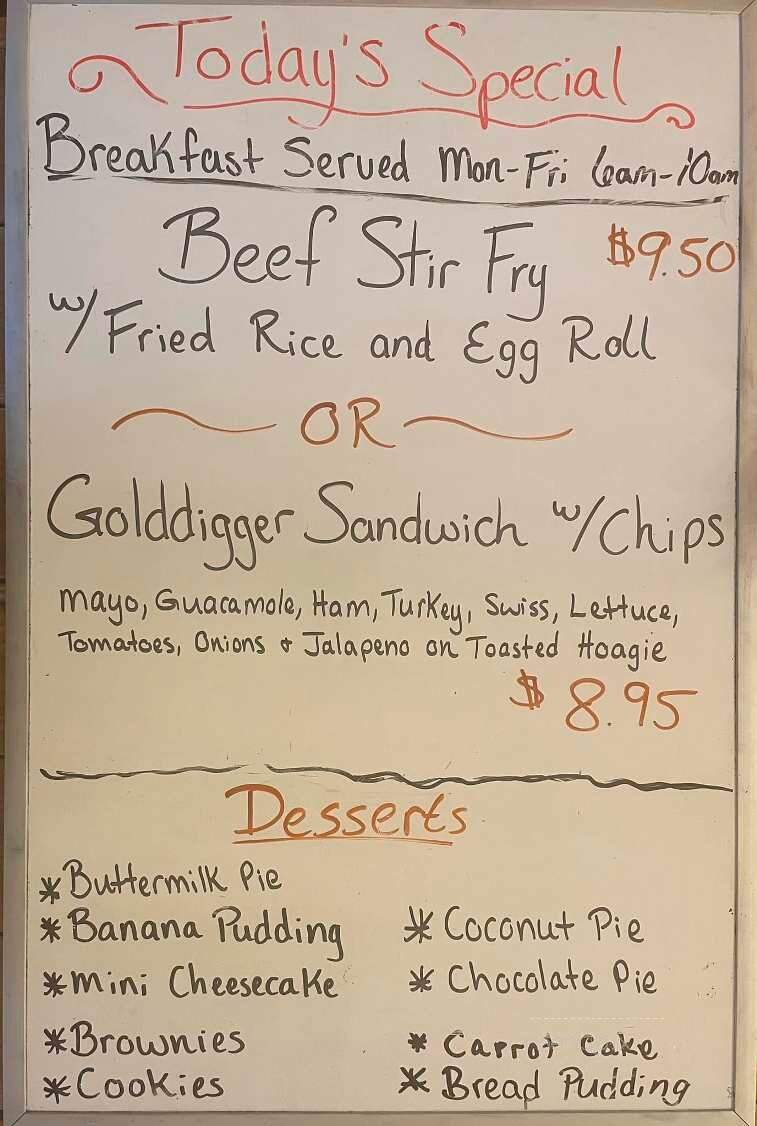 Today's Special
Breakfast Served Mon-Fri 6am-10am
Beef Stir Fry $9.50
w/ Fried Rice and Egg Roll
OR
Golddigger Sandwich w/ Chips
Mayo, Guacamole, Ham, Turkey, Swiss, Lettuce,
Tomatoes, Onions & Jalapeno on Toasted Hoagie
$8.95
Desserts
* Buttermilk Pie
* Banana Pudding
* Mini Cheesecake
* Brownies
* Cookies
* Coconut Pie
* Chocolate Pie
* Carrot Cake
* Bread Pudding